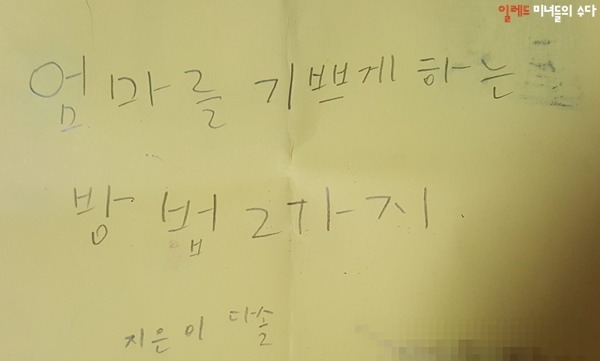 일레드 미녀들의 수다
엄마를 기쁘게 하는
방법 2가지
지은이 다솔